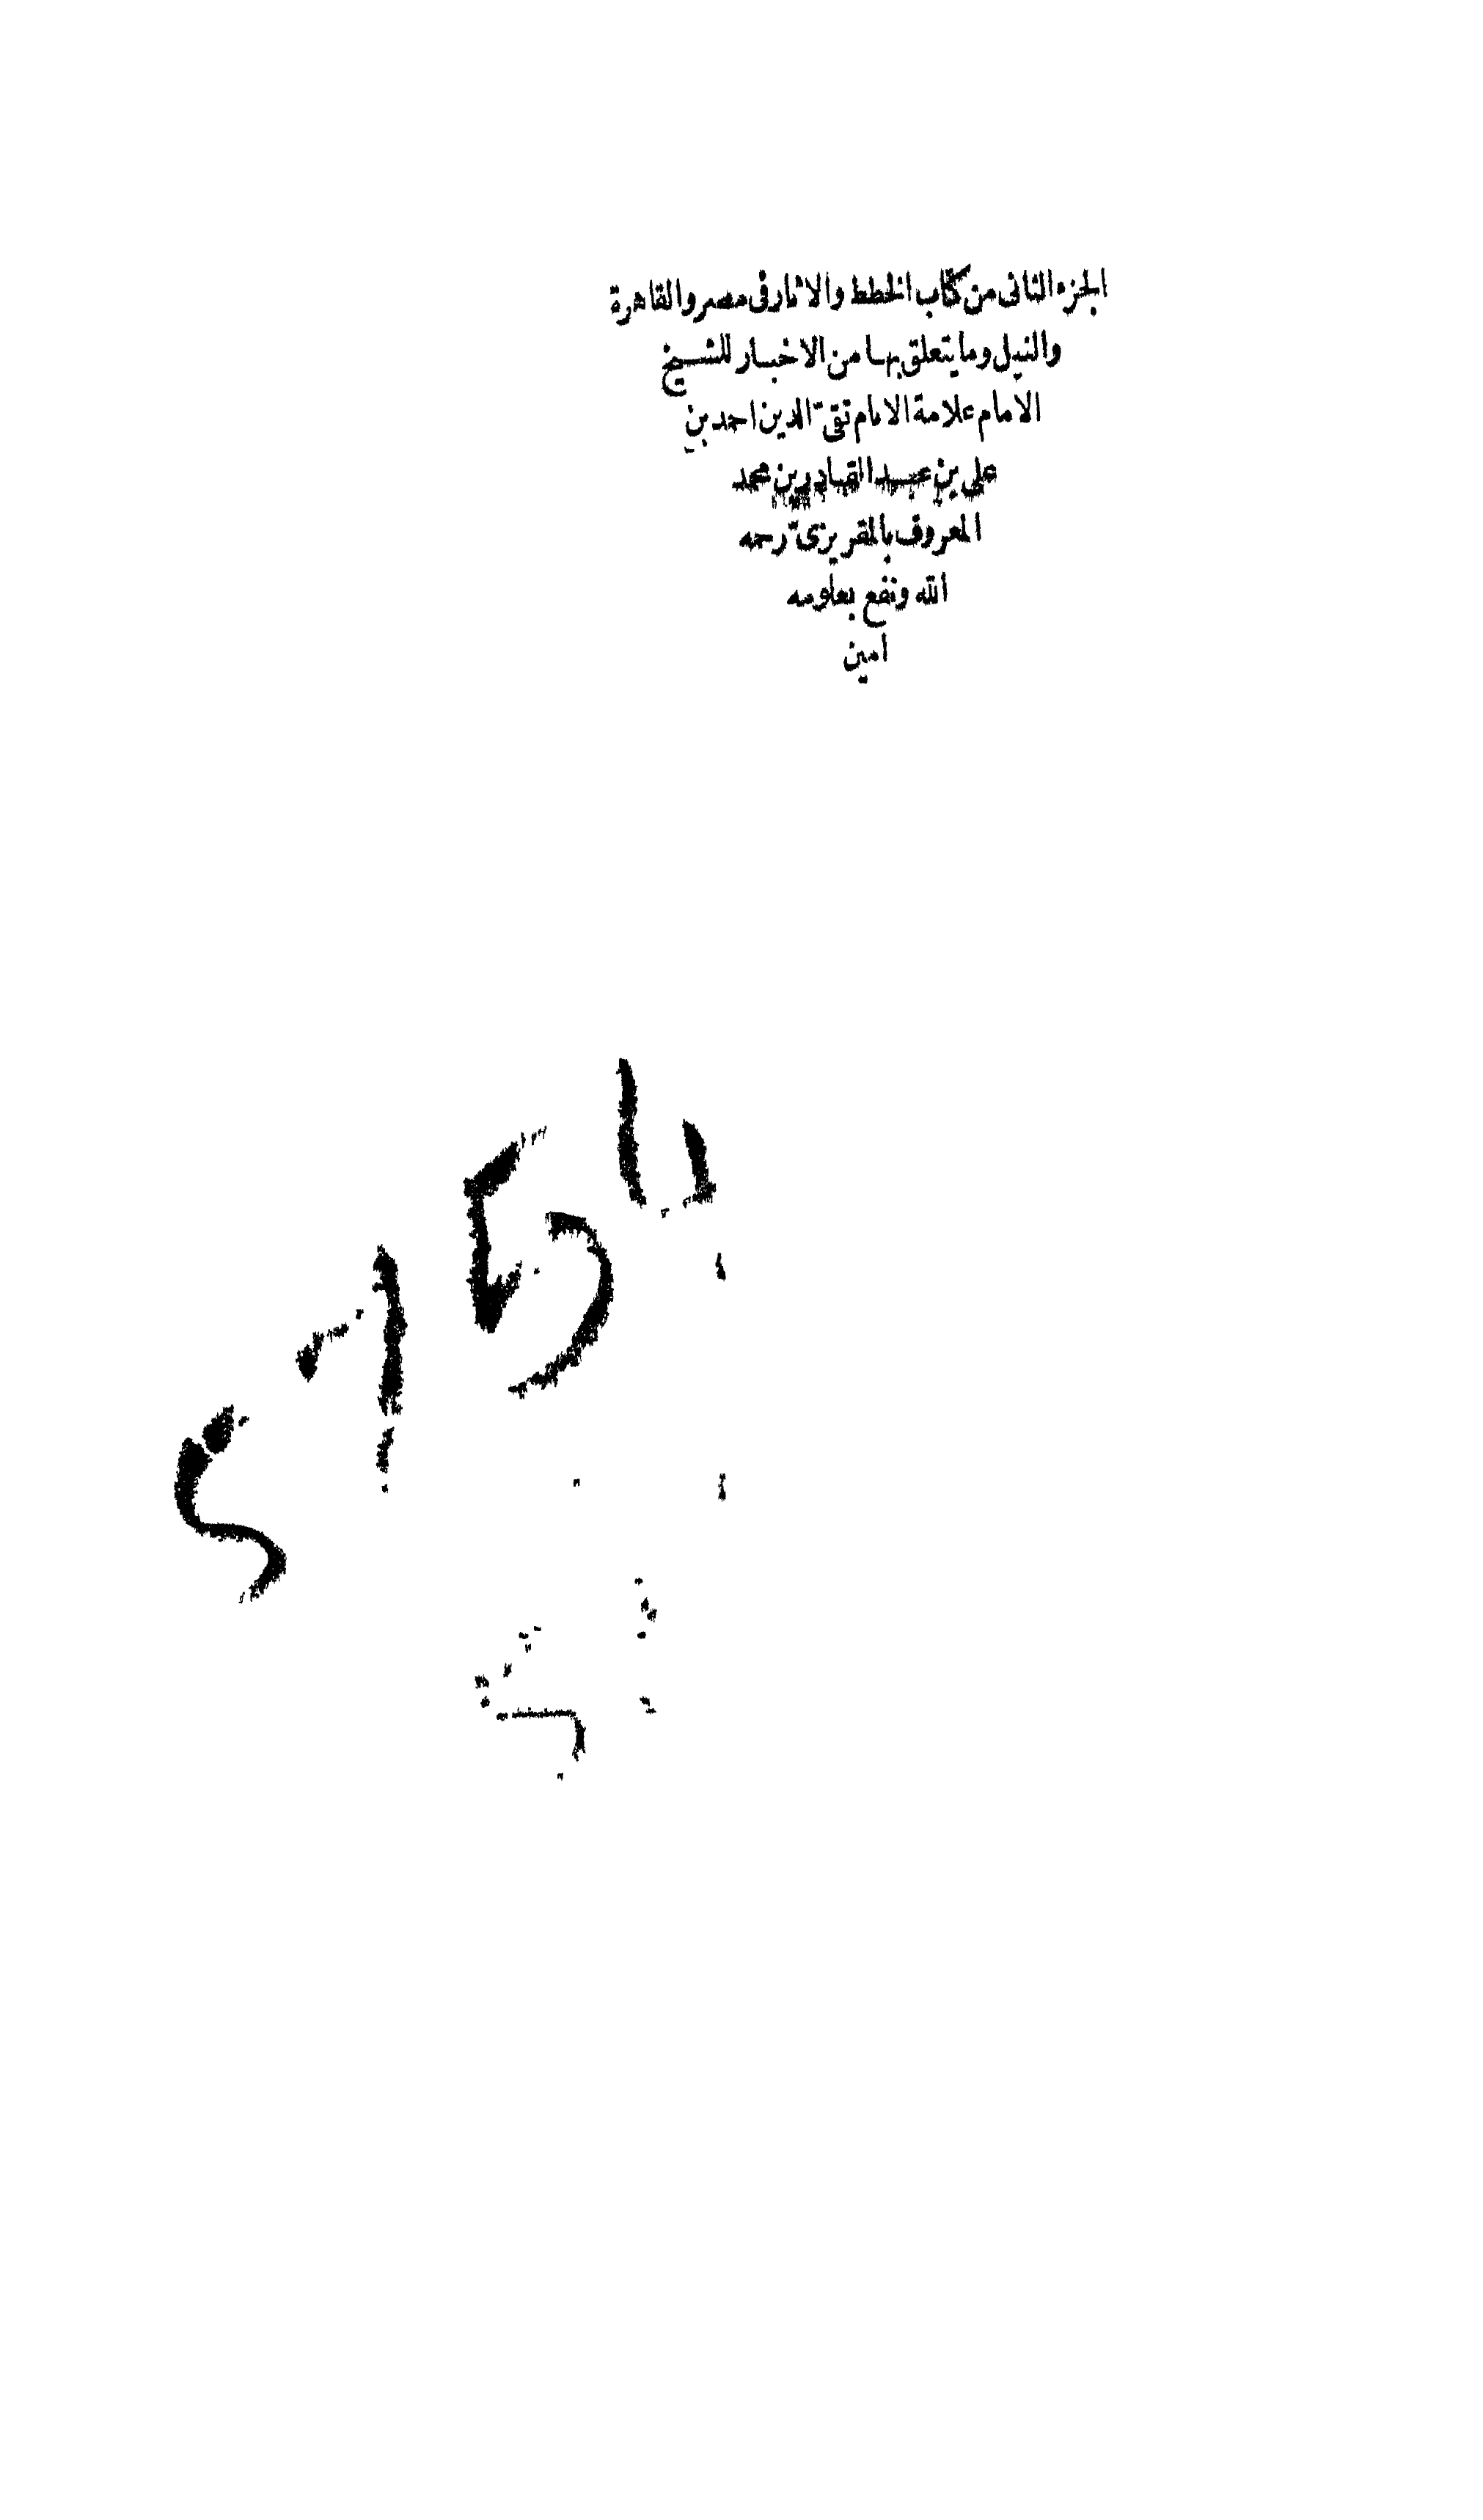 الجزء الثانى من كتاب الخطط والاثار فى مصر والقاهرة
والنيل وما يتعلق بها من الاخبار للشيخ
الامام علامة الانام تقى الدين احمد بن
على بن عبد القادر بن محمد
المعروف بالمقريزى رحمه
الله ونفع بعلومه
امين